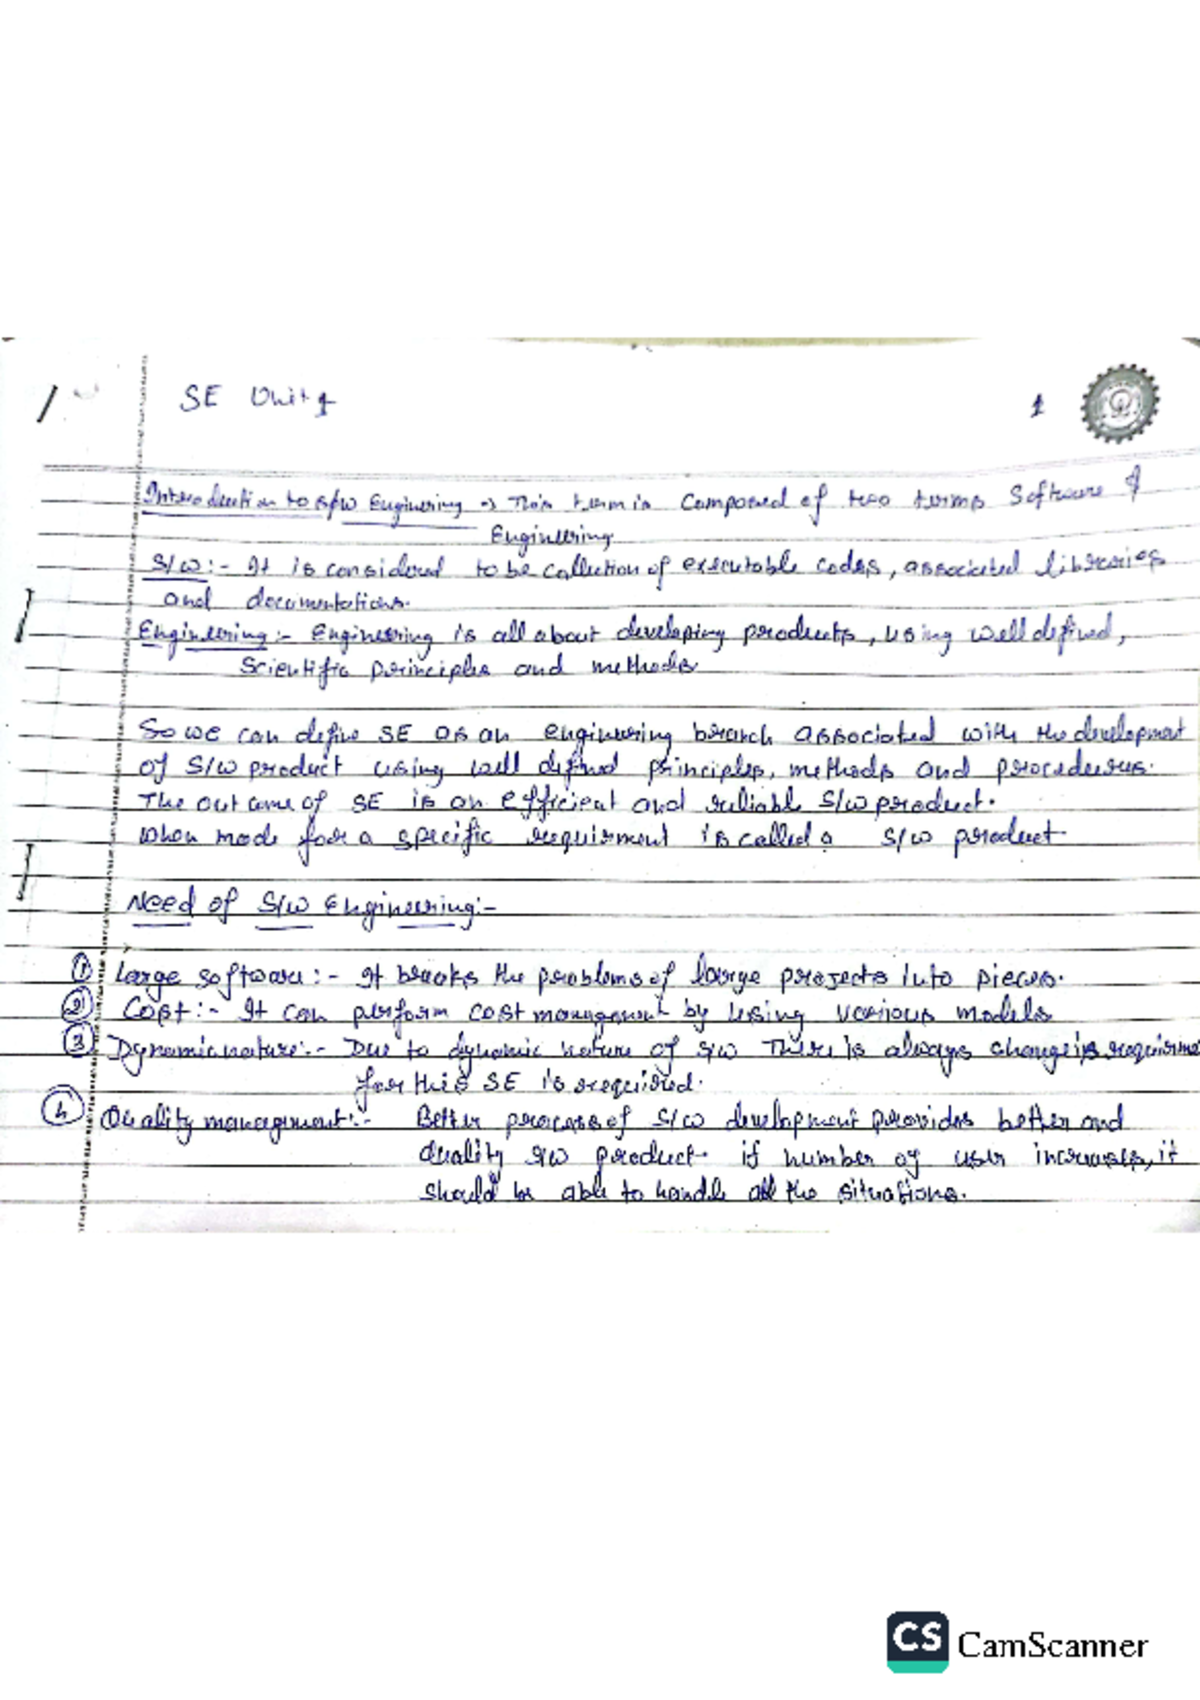 SE Unit 1
1
Introduction to S/W Engineering → This term is Composed of two terms Software &
Engineering
S/W :- It is considered to be collection of executable codes, associated libraries
and documentations.
Engineering :- Engineering is all about developing products, using well defined,
Scientific principles and methods
So we can define SE as an engineering branch associated with the development
of S/W product using well defined principles, methods and procedures.
The outcome of SE is an efficient and reliable S/W product.
When made for a specific requirment is called a S/W product
Need of S/W Engineering:-
① Large software :- It breaks the problems of large projects into pieces.
② Cost :- It can perform cost management by using various models
③ Dynamic nature :- Due to dynamic nature of S/W There is always change in requirme
for this SE is required.
④ Quality management :- Better process of S/W development provides better and
quality S/W product. if number of user increases, it
should be able to handle all the situations.
CS CamScanner